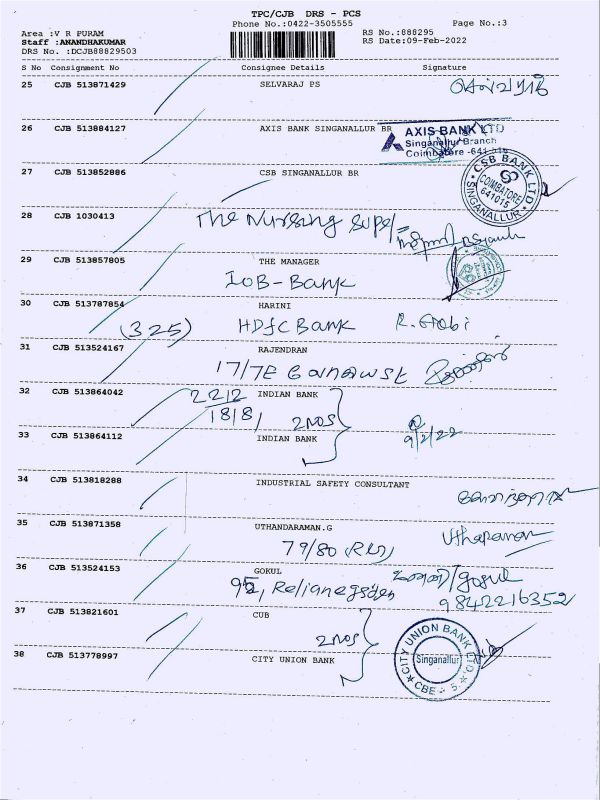 TPC/CJB DRS - PCS
Phone No.:0422-3505555
Page No.:3
Area :V R PURAM
RS No.:888295
Staff :ANANDHAKUMAR
RS Date:09-Feb-2022
DRS No. :DCJB88829503
S No Consignment No Consignee Details Signature
25 CJB 513871429 SELVARAJ PS
செல்வராஜ்
26 CJB 513884127 AXIS BANK SINGANALLUR BR
AXIS BANK LTD
Singanallur Branch
Coimbatore -641
27 CJB 513852886 CSB SINGANALLUR BR
CSB BANK LTD
COIMBATORE
641015
SINGANALLUR
28 CJB 1030413 The Nursing Supe
29 CJB 513857805 THE MANAGER
IOB-Bank
30 CJB 513787854 HARINI
(325) HDFC Bank
31 CJB 513524167 RAJENDRAN
17/7E
32 CJB 513864042 INDIAN BANK
2212
1818, 2NOS
9/2/22
33 CJB 513864112 INDIAN BANK
34 CJB 513818288 INDUSTRIAL SAFETY CONSULTANT
35 CJB 513871358 UTHANDARAMAN.G
79/80
36 CJB 513524153 GOKUL
95, gokul
9842216352
37 CJB 513821601 CUB
2NOS
38 CJB 513778997 CITY UNION BANK
CITY UNION BANK LTD.
Singanallur
CBE - 5.